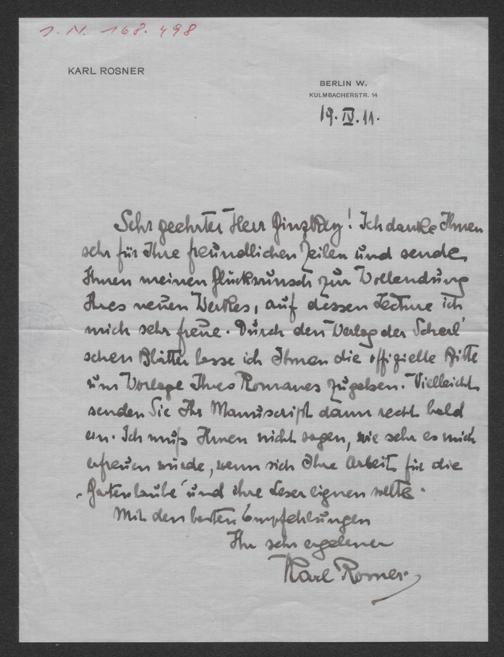 J. N. 168.498
KARL ROSNER
BERLIN W.
KULMBACHERSTR. 14
19. IV. 11.
Sehr geehrter Herr Ginzkey! Ich danke Ihnen
sehr für Ihre freundlichen Zeilen und sende
Ihnen meinen Glückwunsch zur Vollendung
Ihres neuen Werkes, auf dessen Lecture ich
mich sehr freue. Durch den Verlag der Scherl'
schen Blätter lasse ich Ihnen die offizielle Bitte
um Vorlage Ihres Romanes zugehen. Vielleicht
senden Sie Ihr Manuscript dann recht bald
ein. Ich muß Ihnen nicht sagen, wie sehr es mich
erfreuen würde, wenn sich Ihre Arbeit für die
„Gartenlaube" und ihre Leser eignen sollte.
Mit den besten Empfehlungen
Ihr sehr ergebener
Karl Rosner